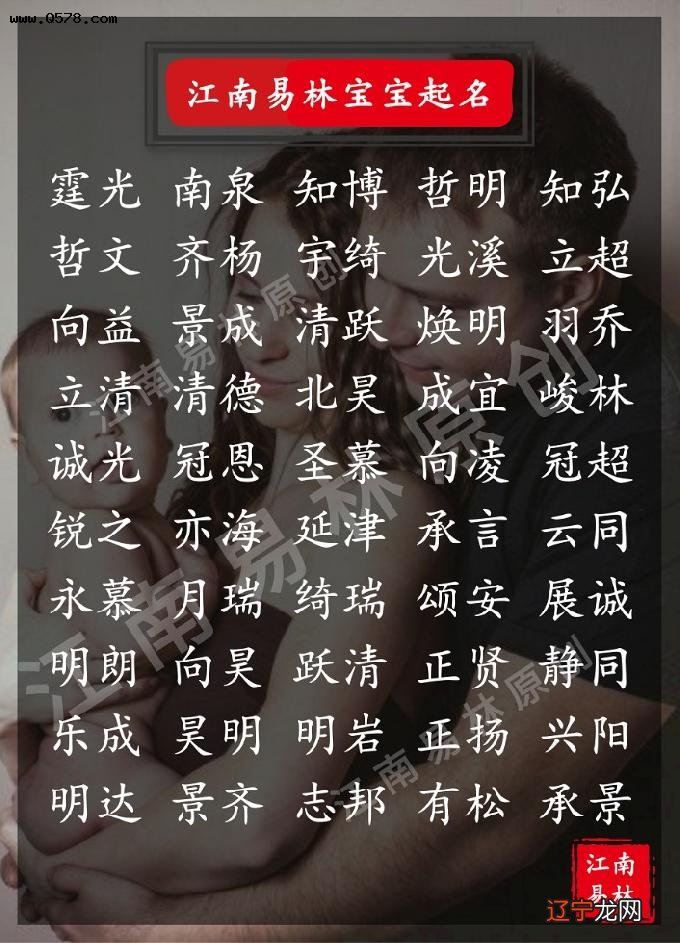 www.Q578.com
江南易林宝宝起名
霆光 南泉 知博 哲明 知弘
哲文 齐杨 宇绮 光溪 立超
向益 景成 清跃 焕明 羽乔
立清 清德 北昊 成宜 峻林
诚光 冠恩 圣慕 向凌 冠超
锐之 亦海 延津 承言 云同
永慕 月瑞 绮瑞 颂安 展诚
明朗 向昊 跃清 正贤 静同
乐成 昊明 明岩 正扬 兴阳
明达 景齐 志邦 有松 承景
江南易林原创
江南易林原创
江南易林原创
江南
易林
辽宁龙网